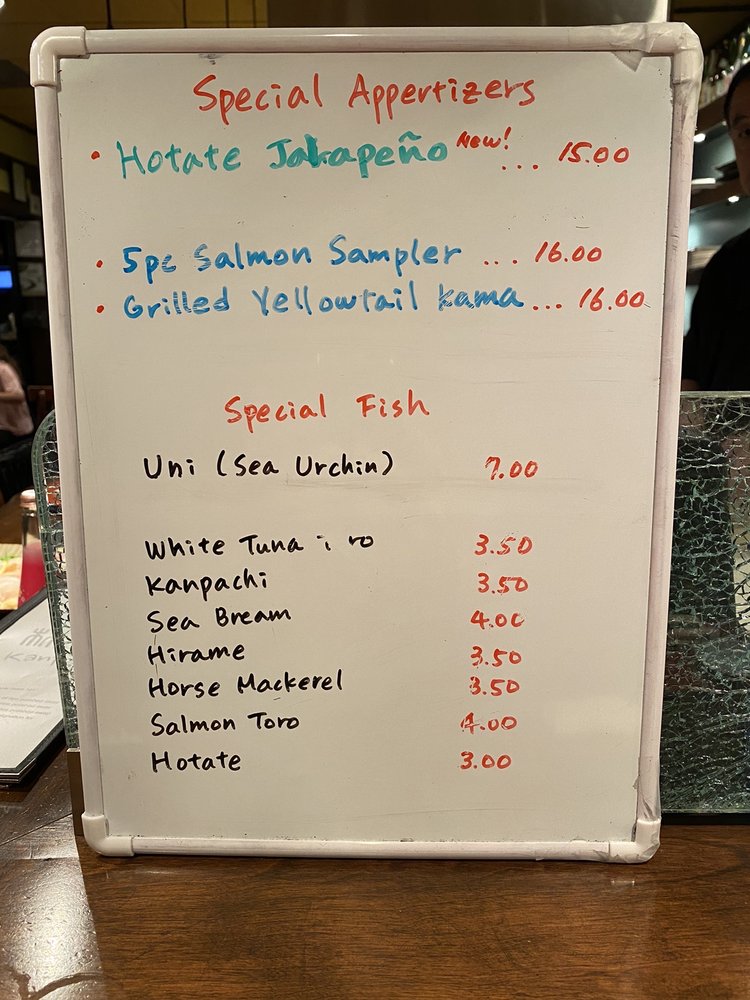 Special Appertizers
• Hotate Jalapeño New! ... 15.00
• 5pc Salmon Sampler ... 16.00
• Grilled Yellowtail kama ... 16.00
Special Fish
Uni (Sea Urchin) 7.00
White Tuna 3.50
Kanpachi 3.50
Sea Bream 4.00
Hirame 3.50
Horse Mackerel 3.50
Salmon Toro 4.00
Hotate 3.00